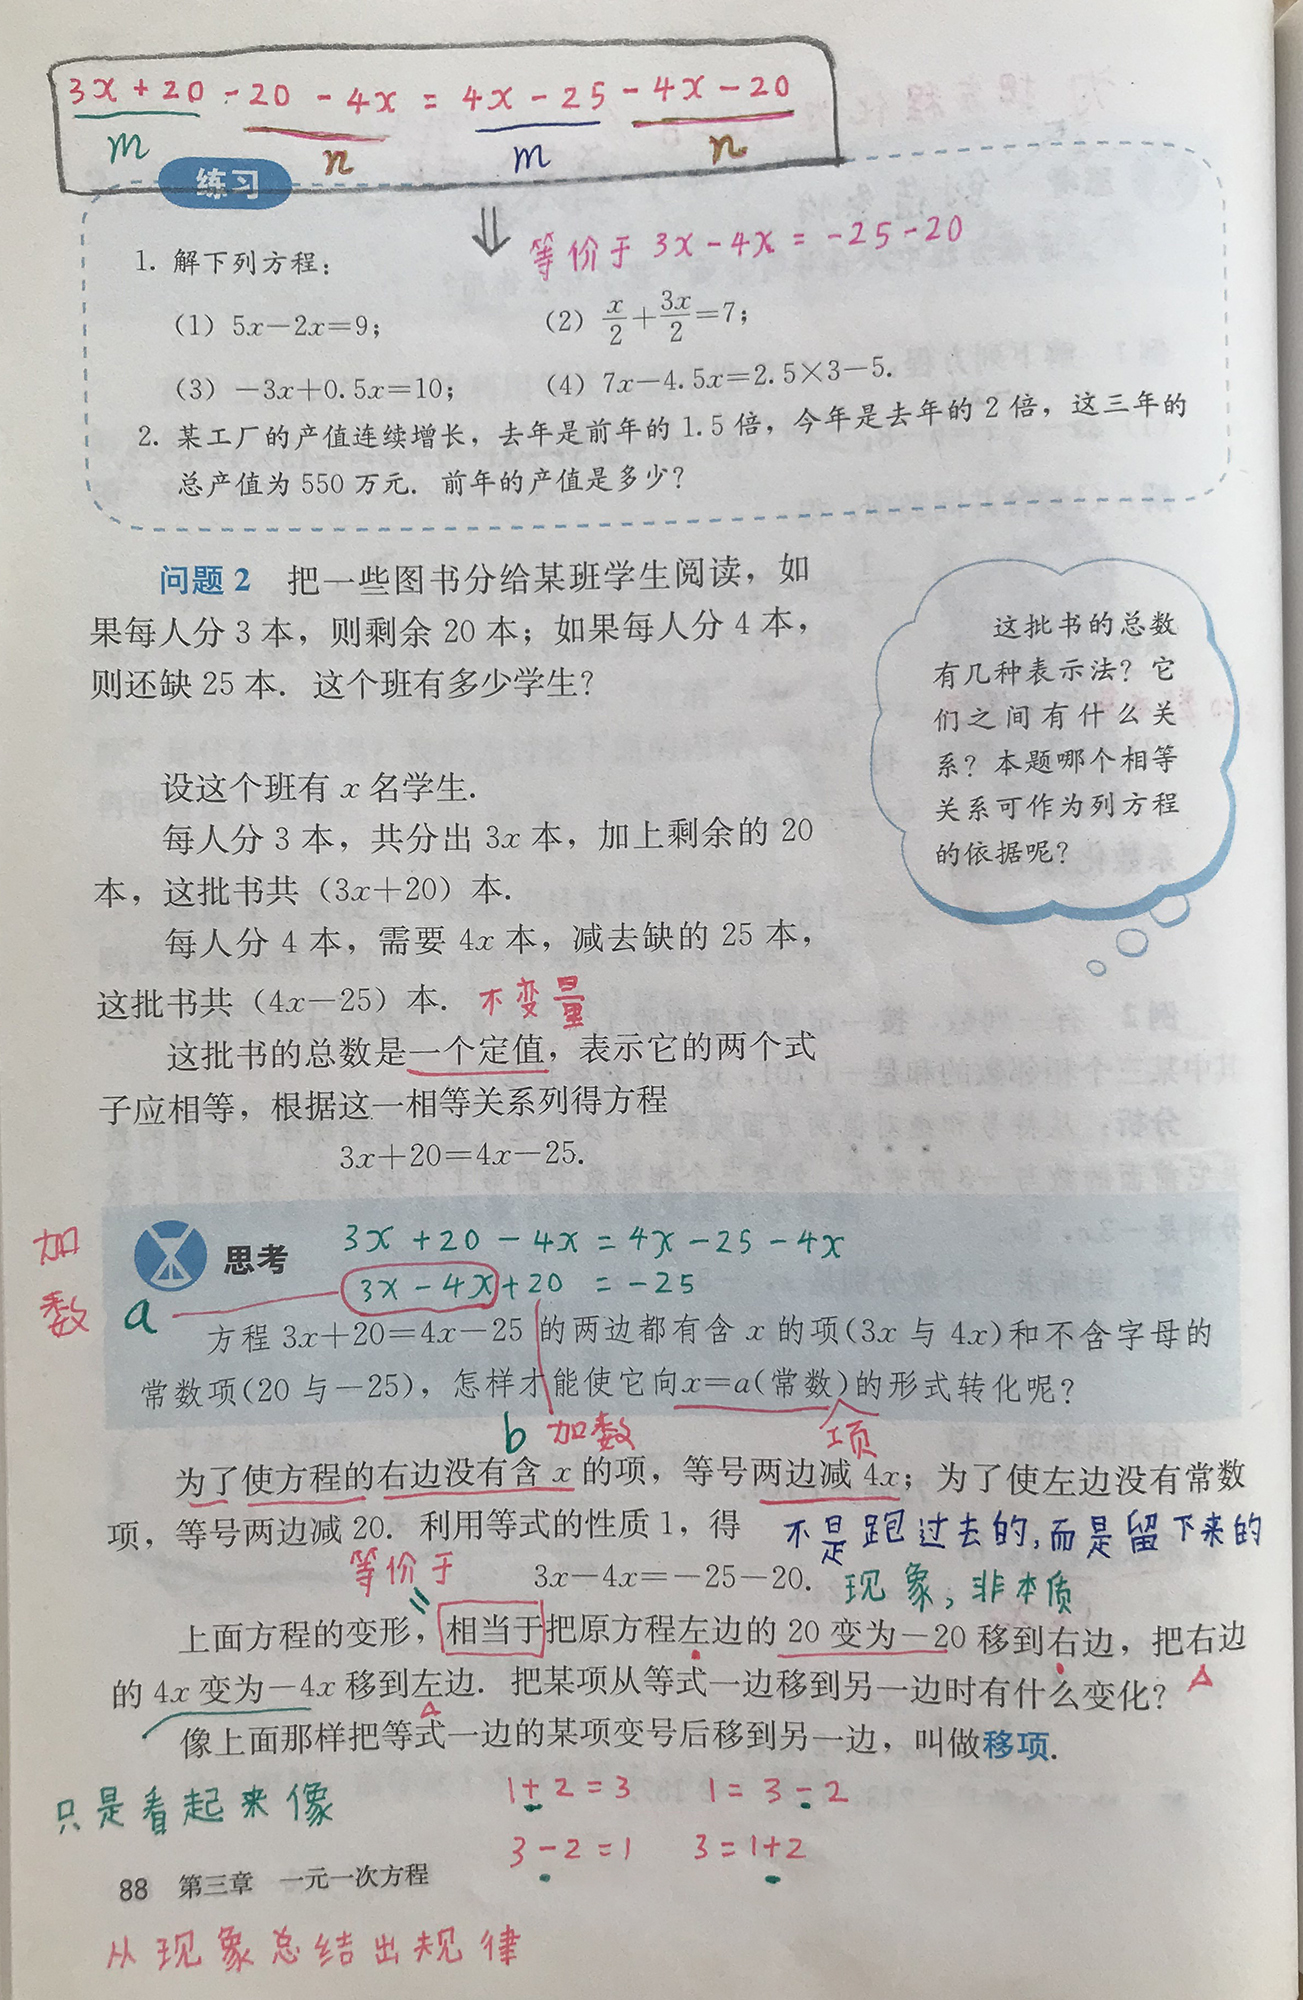 3x+20-20-4x=4x-25-4x-20
m n m n
练习
等价于 3x-4x=-25-20
1. 解下列方程：
（1）5x-2x=9； （2）x/2+3x/2=7；
（3）-3x+0.5x=10； （4）7x-4.5x=2.5×3-5.
2. 某工厂的产值连续增长，去年是前年的1.5倍，今年是去年的2倍，这三年的
总产值为550万元. 前年的产值是多少？
问题2 把一些图书分给某班学生阅读，如
果每人分3本，则剩余20本；如果每人分4本，
则还缺25本. 这个班有多少学生？
这批书的总数
有几种表示法？它
们之间有什么关
系？本题哪个相等
关系可作为列方程
的依据呢？
设这个班有x名学生.
每人分3本，共分出3x本，加上剩余的20
本，这批书共（3x+20）本.
每人分4本，需要4x本，减去缺的25本，
这批书共（4x-25）本. 不变量
这批书的总数是一个定值，表示它的两个式
子应相等，根据这一相等关系列得方程
3x+20=4x-25.
加
数
思考
3x+20-4x=4x-25-4x
a 3x-4x+20=-25
方程3x+20=4x-25的两边都有含x的项(3x与4x)和不含字母的
常数项(20与-25)，怎样才能使它向x=a(常数)的形式转化呢？
b 加数 项
为了使方程的右边没有含x的项，等号两边减4x；为了使左边没有常数
项，等号两边减20. 利用等式的性质1，得 不是跑过去的,而是留下来的
等价于 3x-4x=-25-20. 现象,非本质
上面方程的变形，相当于把原方程左边的20变为-20移到右边，把右边
的4x变为-4x移到左边. 把某项从等式一边移到另一边时有什么变化？
像上面那样把等式一边的某项变号后移到另一边，叫做移项.
只是看起来像
1+2=3 1=3-2
3-2=1 3=1+2
88 第三章 一元一次方程
从现象总结出规律